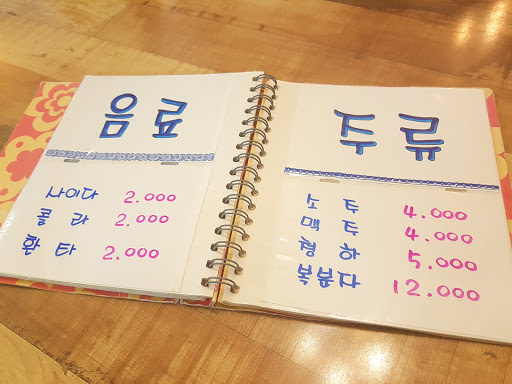 음료
사이다 2.000
콜라 2.000
환타 2.000
주류
소주 4.000
맥주 4.000
청하 5.000
복분자 12.000